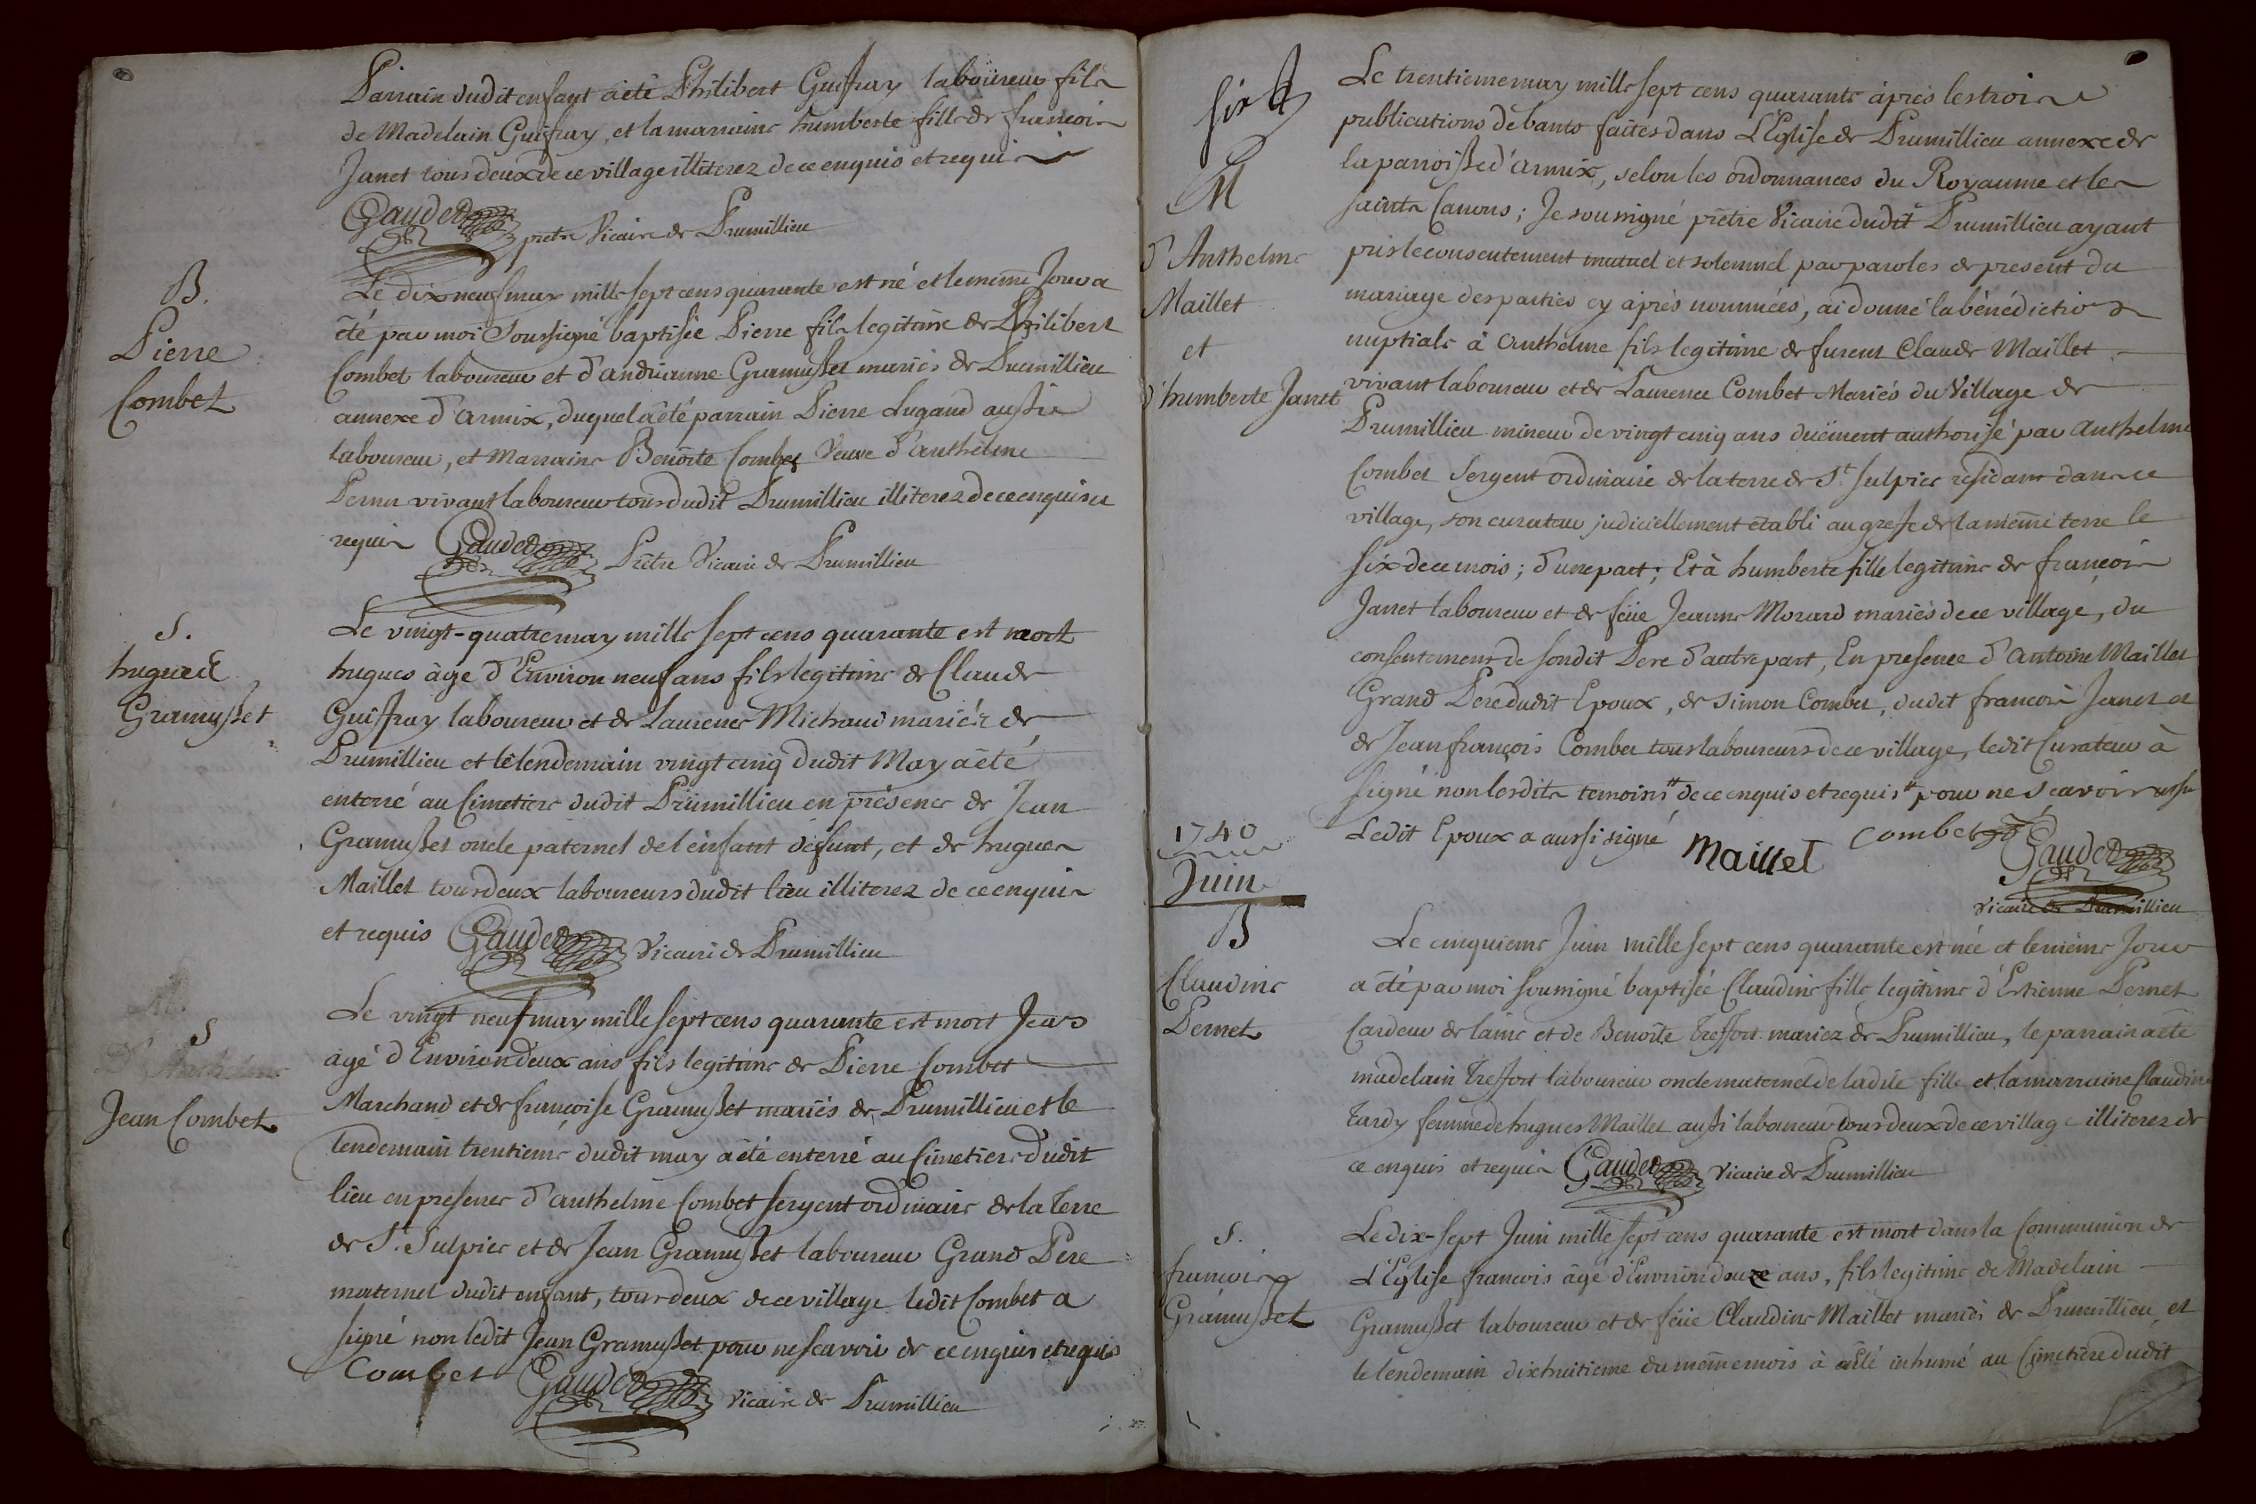 Parrain dudit enfant à été Philibert Guiffray laboureur fils
de Madelain Guiffray, et la marraine humberte fille de francois
Janet tous deux de ce village illiterez de ce enquis et requis
Gaudet prêtre Vicaire de Prumillieu
B.
Pierre
Combet
Le dix neuf may mille sept cens quarante est né et le même Jour a
été par moi Soussigné baptisée Pierre fils legitime de Philibert
Combet laboureur et d'andrianne Gramusset mariés de Prumillieu
annexe d'armix, duquel à été parrain Pierre Lugand aussi
laboureur, et Marraine Benoîte Combet Veuve d'anthelme
Pernet vivant laboureur tous dudit Prumillieu illiterez de ce enquis et
requis Gaudet Prêtre Vicaire de Prumillieu
S.
hugues
Gramusset
Le vingt-quatre may mille sept cens quarante est mort
hugues âge d'Environ neuf ans fils legitime de Claude
Guiffray laboureur et de Laurence Michaud mariés de
Prumillieu et le lendemain vingt cinq dudit May a été
enterré au Cimetiere dudit Prumillieu en présence de Jean
Gramusset oncle paternel de l'enfant défunt, et de hugues
Maillet tous deux laboureurs dudit lieu illiterez de ce enquis
et requis Gaudet Vicaire de Prumillieu
M.
S
D'Anthelme
Jean Combet
Le vingt neuf may mille sept cens quarante est mort Jean
âgé d'Environ deux ans fils legitime de Pierre Combet
Marchand et de françoise Gramusset mariés de Prumillieu et le
lendemain trentieme dudit may a été enterré au Cimetiere dudit
lieu en presence d'anthelme Combet sergent ordinaire de la Terre
de St. Sulpice et de Jean Gramusset laboureur Grand Pere
maternel dudit enfant, tous deux de ce village ledit Combet a
signé non ledit Jean Gramusset pour ne scavoir de ce enquis et requis
Combet Gaudet vicaire de Prumillieu
M
d'Anthelme
Maillet
et
d'humberte Janet
Le trentieme may mille sept cens quarante àprès les trois
publications de bants faites dans L'Eglise de Prumillieu annexe de
la parroisse d'armix, selon les ordonnances du Royaume et les
saints Canons; Je soussigné prêtre Vicaire dudit Prumillieu ayant
pris le consentement mutuel et solemnel par paroles de present du
mariage des parties cy après nommées, ai donné la bénédiction
nuptiale à anthelme fils legitime de furent Claude Maillet
vivant laboureur et de Laurence Combet Mariés du Village de
Prumillieu mineur de vingt cinq ans duëment authorisé par anthelme
Combet Sergent ordinaire de la terre de St. Sulpice residant dans ce
village, son curateur judiciellement établi au grefe de la même terre le
six de ce mois; d'une part; Et à humberte fille legitime de françois
Janet laboureur et de feüe Jeanne Morard mariés de ce village, du
consentement de sondit Pere d'autre part, En presence d'antoine Maillet
Grand Pere dudit Epoux, de Simon Combet, dudit francois Janet et
de Jean françois Combet tous laboureurs de ce village, ledit Curateur à
signé non lesdits temoins de ce enquis et requis pour ne scavoir
Ledit Epoux a aussi signé Maillet Combet Gaudet
Vicaire de Prumillieu
1740
Juin
B
Claudine
Pernet
Le cinquieme Juin mille sept cens quarante est née et le même Jour
a été par moi soussigné baptisée Claudine fille legitime d'Estienne Pernet
Cardeur de laine et de Benoîte Treffort mariez de Prumillieu, le parrain a été
madelain Treffort laboureur oncle maternel de ladite fille et la marraine Claudine
Tardy femme de hugues Maillet aussi laboureur tous deux de ce village illiterez de
ce enquis et requis Gaudet Vicaire de Prumillieu
S.
francois
Gramusset
Le dix-sept Juin mille sept cens quarante est mort dans la Communion de
L'Eglise francois âgé d'Environ douze ans, fils legitime de Madelain
Gramusset laboureur et de feüe Claudine Maillet mariés de Prumillieu, et
le lendemain dixhuitieme du même mois à été inhumé au Cimetiere dudit